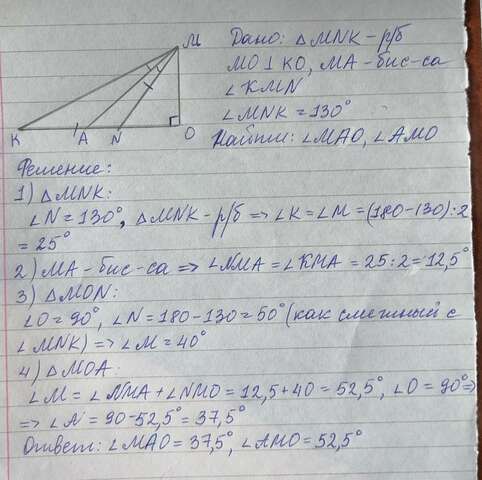 M
K A N O
Дано: △MNK - р/б
MO ⊥ KO, MA - бис-са
∠KMN
∠MNK = 130°
Найти: ∠MAO, ∠AMO
Решение:
1) △MNK:
∠N = 130°, △MNK - р/б => ∠K = ∠M = (180-130):2
= 25°
2) MA - бис-са => ∠NMA = ∠KMA = 25:2 = 12,5°
3) △MON:
∠O = 90°, ∠N = 180-130 = 50° (как смежный с
∠MNK) => ∠M = 40°
4) △MOA:
∠M = ∠NMA + ∠NMO = 12,5 + 40 = 52,5°, ∠O = 90° =>
=> ∠A = 90-52,5° = 37,5°
Ответ: ∠MAO = 37,5°, ∠AMO = 52,5°